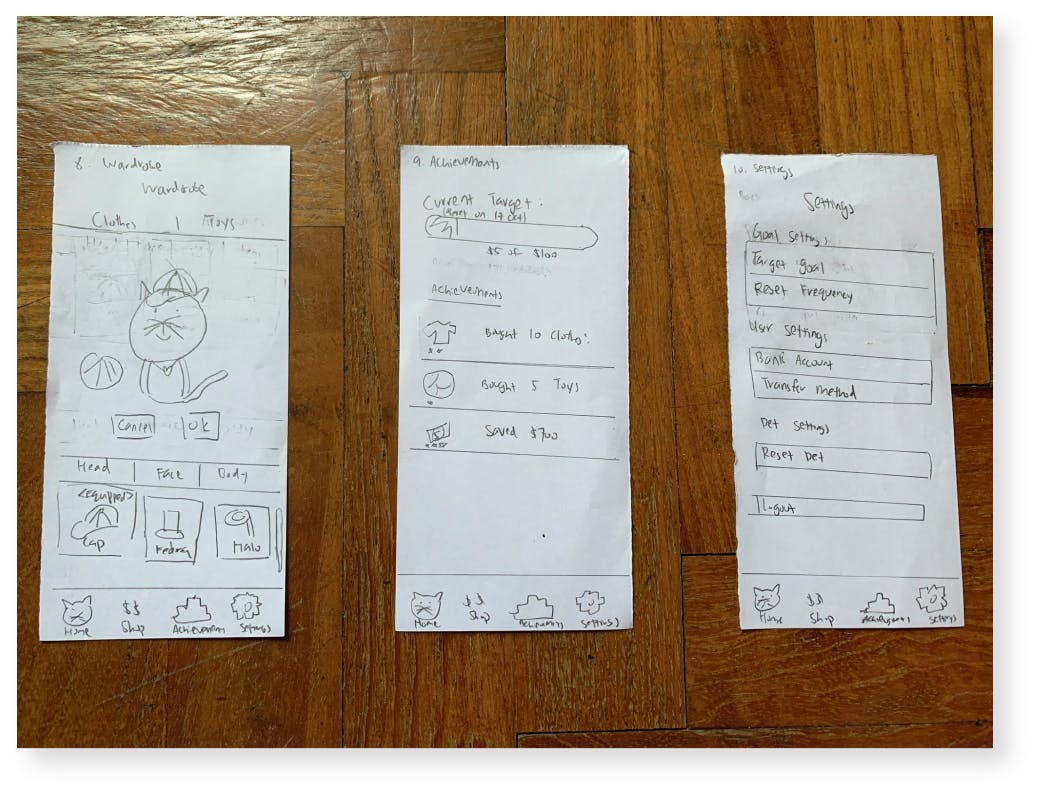 8. Wardrobe
Wardrobe
Clothes | Toys
Cancel OK
Head | Face | Body
<equipped>
Cap Fedora Halo
Home $$ Shop Achievements Settings
9. Achievements
Current Target:
(Reset on 17 Oct)
$5 of $100
Achievements
Bought 10 Clothes
Bought 5 Toys
Saved $700
Home $$ Shop Achievements Settings
10. Settings
Settings
Goal Settings
Target goal
Reset Frequency
User Settings
Bank Account
Transfer method
Pet settings
Reset Pet
Logout
Home $$ Shop Achievements Settings